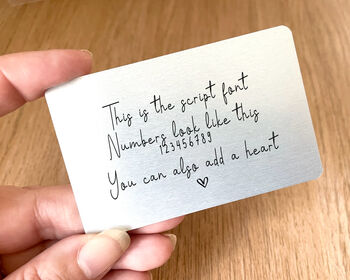 This is the script font
Numbers look like this
123456789
You can also add a heart